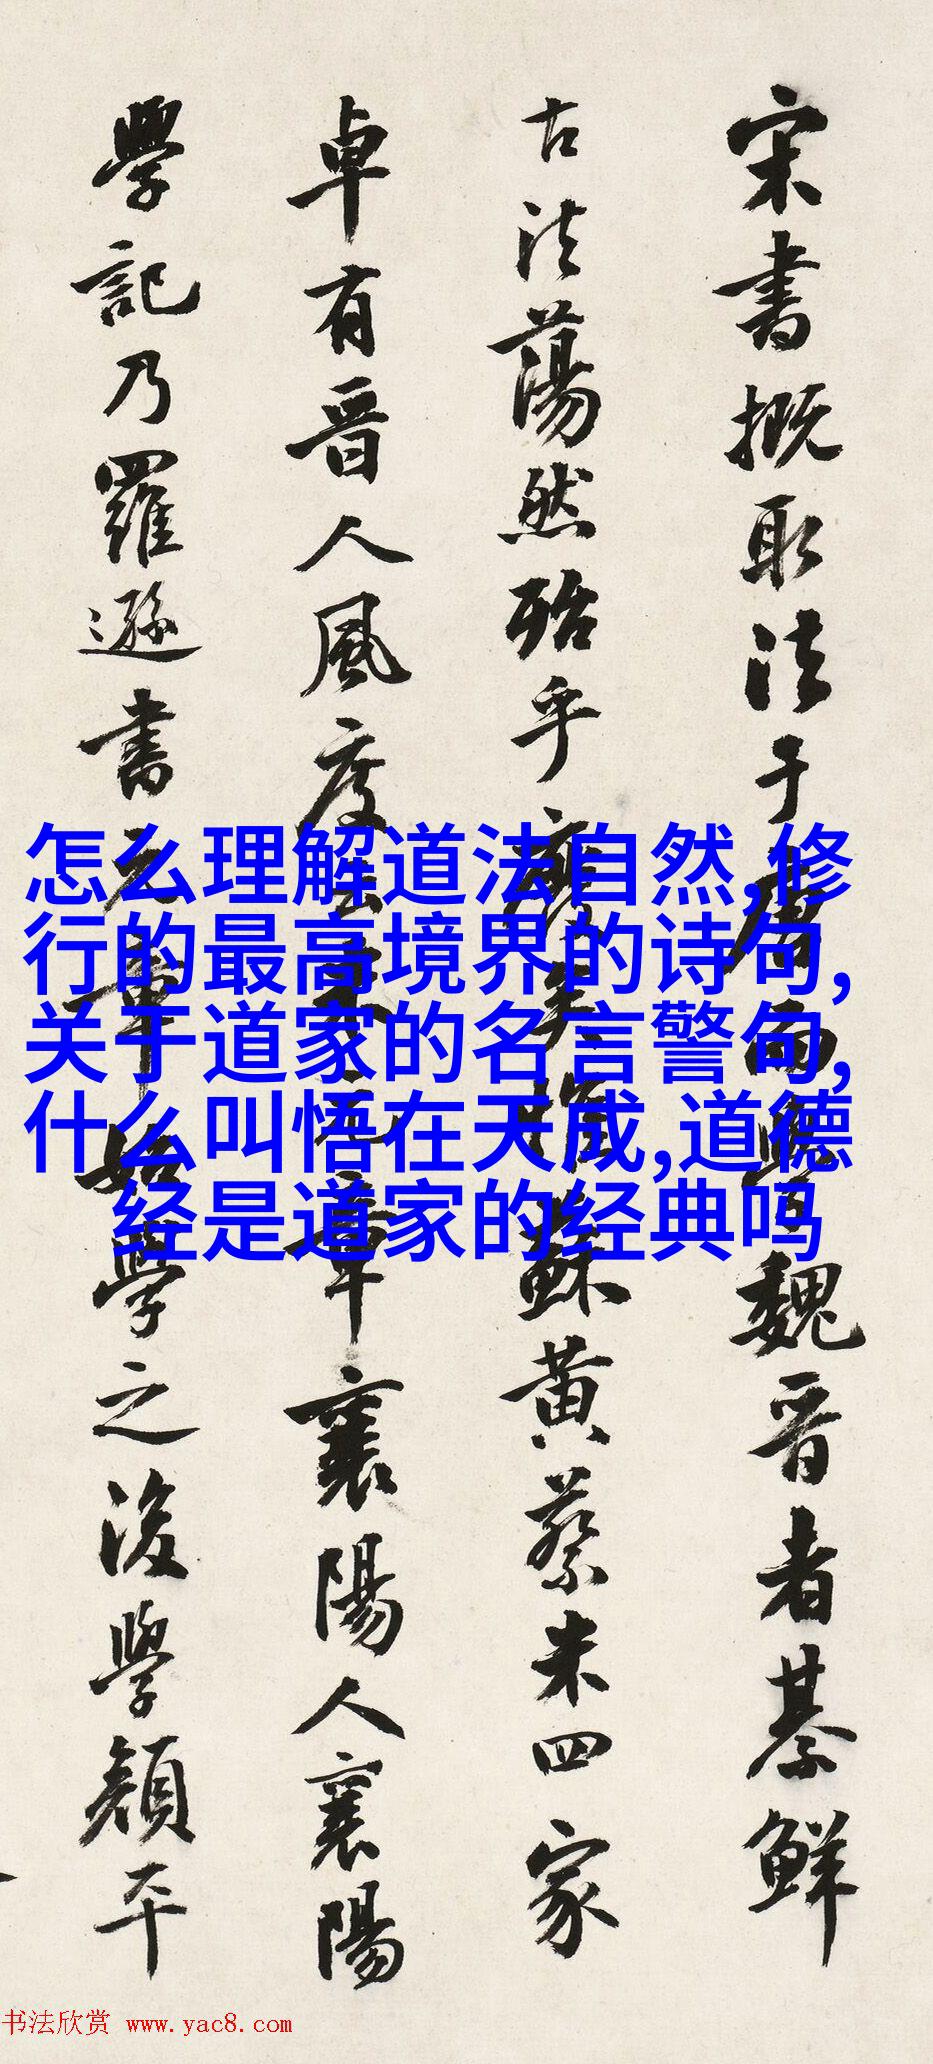 宋書概取法于唐而學魏晋者綦鮮
古法蕩然殆乎齊美惟蘇黄蔡米四家
卓有晋人風度章襄陽人襄陽
學記乃羅遜書元章始學之後學顔平
怎么理解道法自然,修
行的最高境界的诗句,
关于道家的名言警句,
什么叫悟在天成,道德
经是道家的经典吗
书法欣赏 www.yac8.com